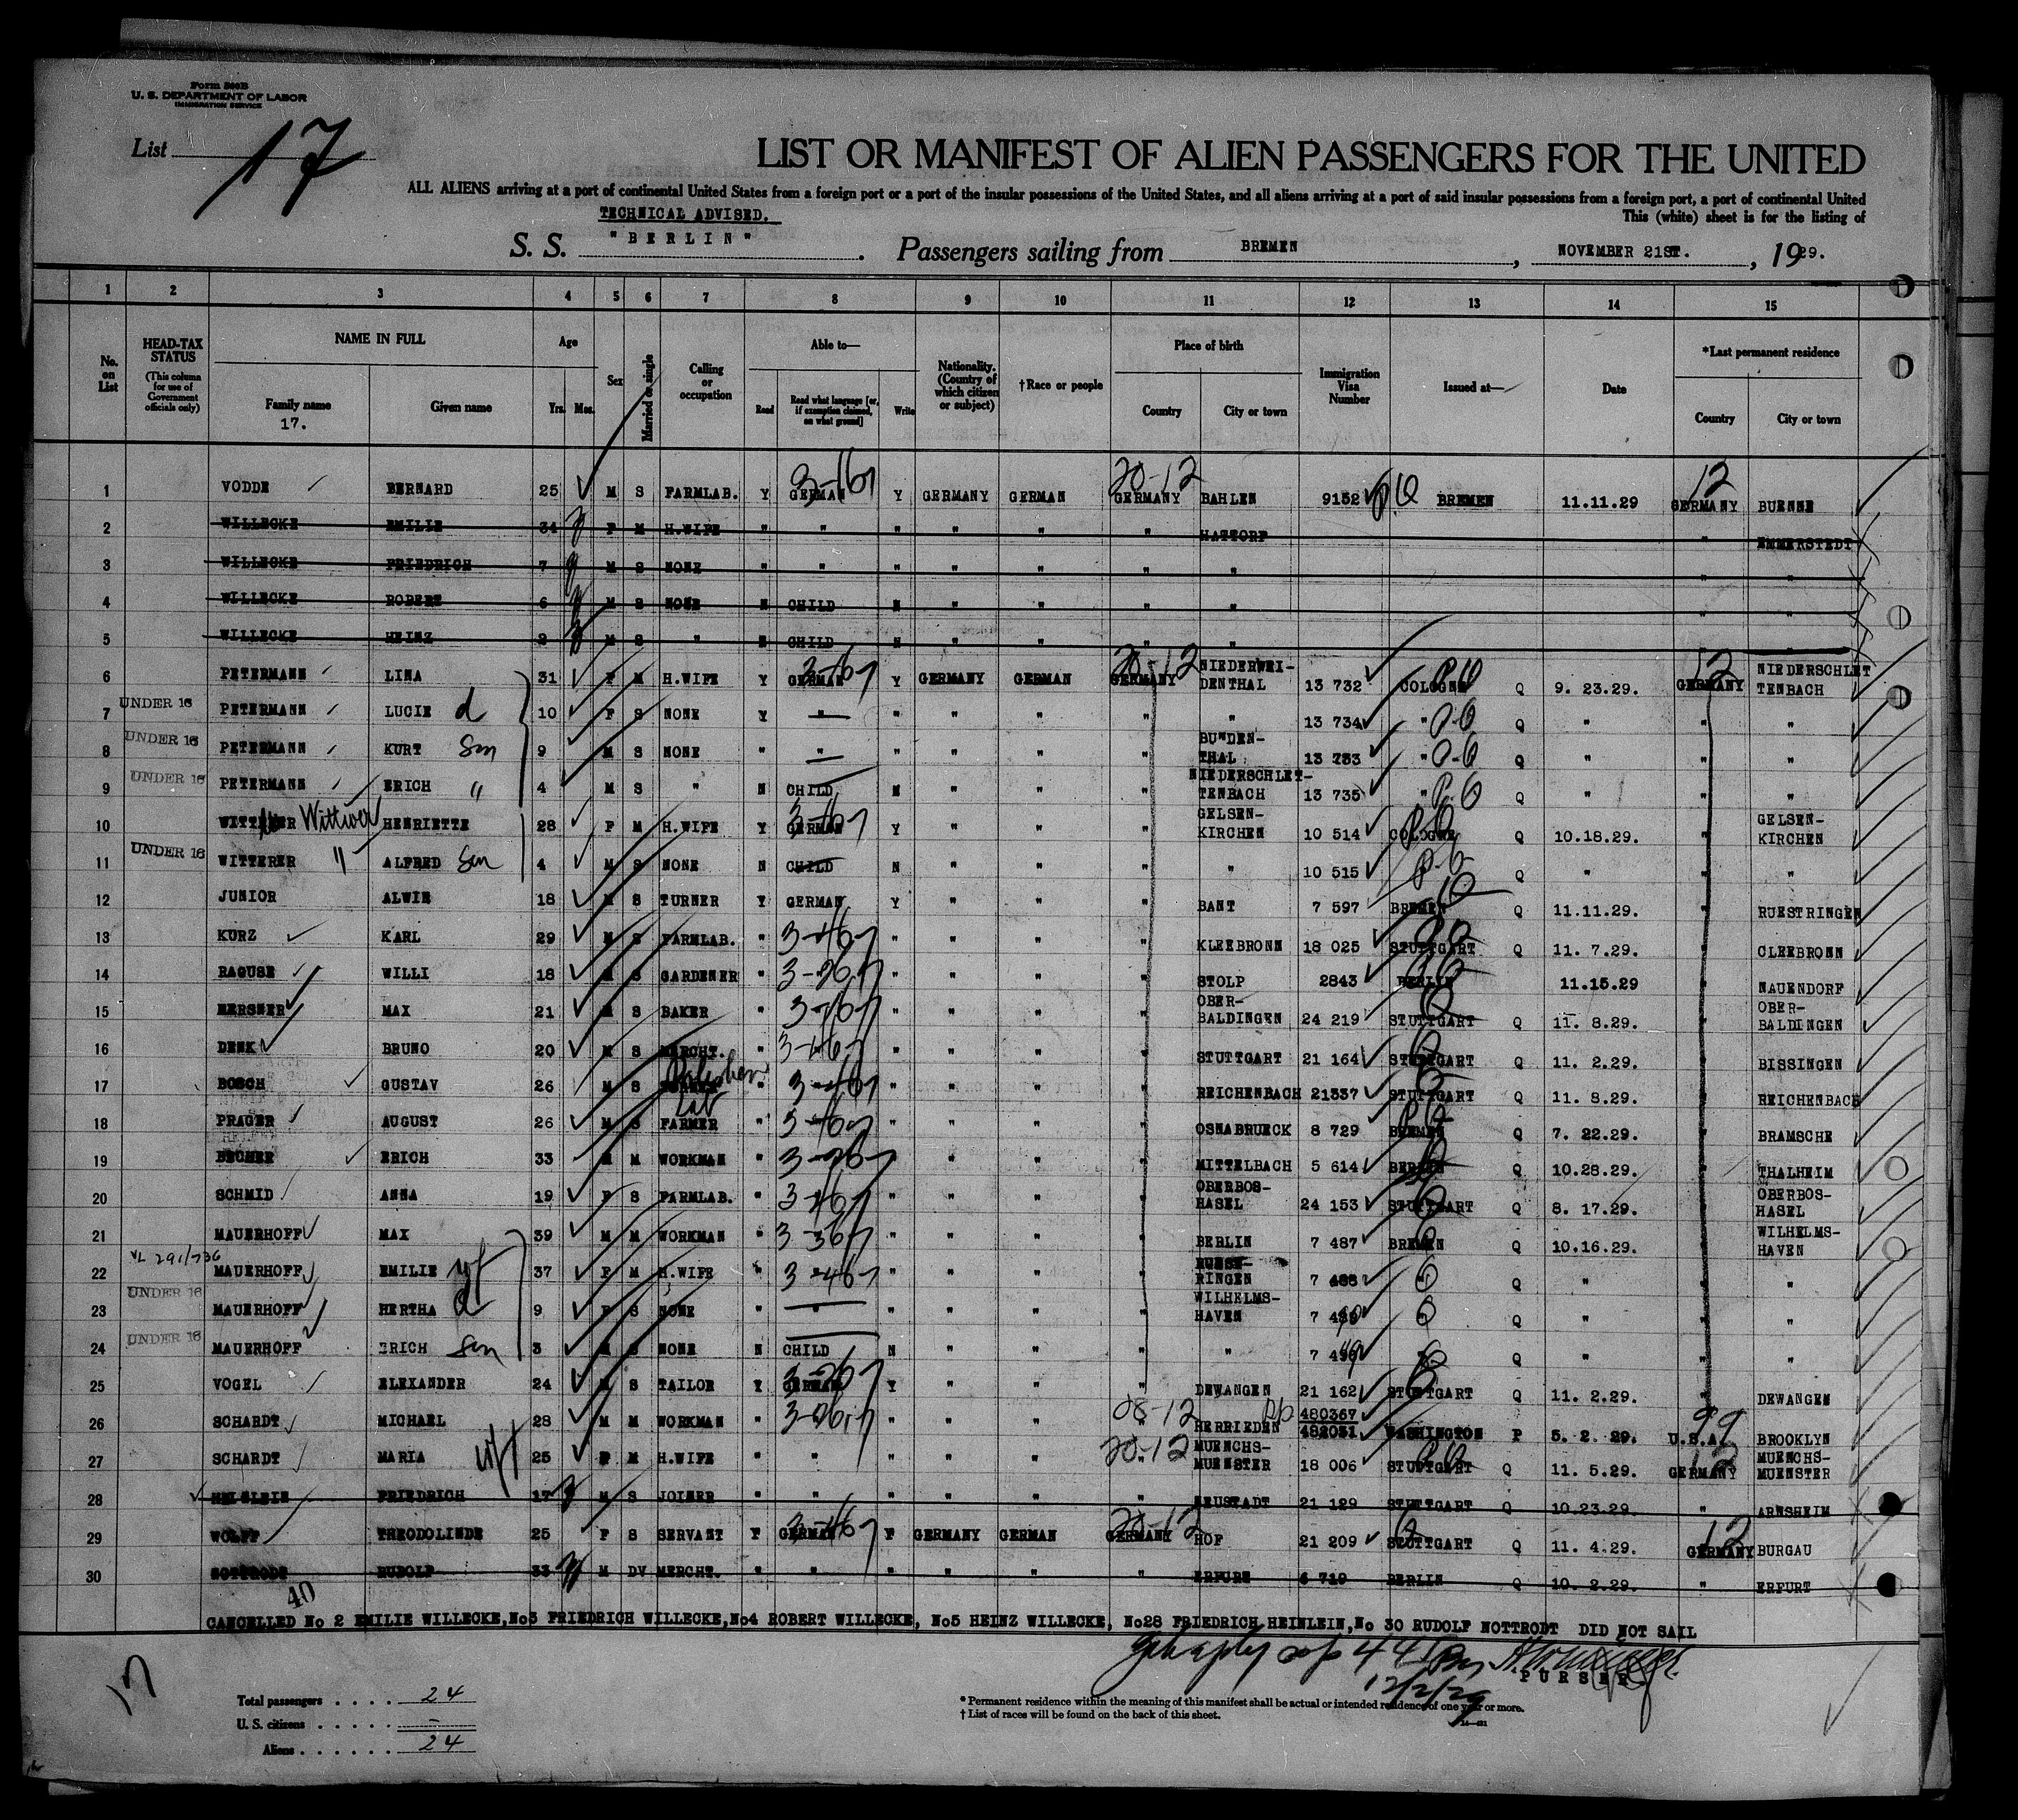 Form 500B
U. S. DEPARTMENT OF LABOR
IMMIGRATION SERVICE
List 17
LIST OR MANIFEST OF ALIEN PASSENGERS FOR THE UNITED
ALL ALIENS arriving at a port of continental United States from a foreign port or a port of the insular possessions of the United States, and all aliens arriving at a port of said insular possessions from a foreign port, a port of continental United
This (white) sheet is for the listing of
TECHNICAL ADVISED.
S. S. "BERLIN". Passengers sailing from BREMEN, NOVEMBER 21ST., 1929.
1 2 3 4 5 6 7 8 9 10 11 12 13 14 15
No. on List
HEAD-TAX STATUS
(This column for use of Government officials only)
NAME IN FULL
Family name
17.
Given name
Age
Yrs. Mos.
Sex
Married or single
Calling or occupation
Able to—
Read
Read what language [or, if exemption claimed, on what ground]
Write
Nationality. (Country of which citizen or subject)
†Race or people
Place of birth
Country
City or town
Immigration Visa Number
Issued at—
Date
*Last permanent residence
Country
City or town
1 VODDE BERNARD 25 M S FARMLAB. Y GERMAN 3-16-7 Y GERMANY GERMAN 20-12 GERMANY BAHLEN 9152 BREMEN 11.11.29 12 GERMANY BUENNE
2 WILLECKE EMILIE 34 F M H.WIFE " " " " " " HATTORF " EMMERSTEDT
3 WILLECKE FRIEDRICH 7 M S NONE " " " " " " " " "
4 WILLECKE ROBERT 6 M S NONE N CHILD N " " " " " "
5 WILLECKE HEINZ 2 M S " N CHILD N " " " " " "
6 PETERMANN LINA 31 F M H.WIFE Y GERMAN Y GERMANY GERMAN 20-12 GERMANY NIEDERWEI-DENTHAL 13 732 COLOGNE Q 9. 23.29. 12 GERMANY NIEDERSCHLETTENBACH
7 UNDER 16 PETERMANN LUCIE d 10 F S NONE Y " " " " " " 13 734 " Q " " "
8 UNDER 16 PETERMANN KURT Son 9 M S NONE " " " " " " BUNDEN-THAL 13 733 " Q " " "
9 UNDER 16 PETERMANN ERICH " 4 M S " N CHILD N " " " NIEDERSCHLET-TENBACH 13 735 " Q " " "
10 WITTERER Wittwer HENRIETTE 28 F M H.WIFE Y GERMAN Y " " " GELSEN-KIRCHEN 10 514 COLOGNE Q 10.18.29. " GELSEN-KIRCHEN
11 UNDER 16 WITTERER " ALFRED Son 4 M S NONE N CHILD N " " " " 10 515 Q " " "
12 JUNIOR ALWIN 18 M S TURNER Y GERMAN Y " " " BANT 7 597 BREMEN Q 11.11.29. " RUESTRINGEN
13 KURZ KARL 29 M S FARMLAB. " 3-46-7 " " " " KLEEBRONN 18 025 STUTTGART Q 11. 7.29. " CLEEBRONN
14 RAGUSE WILLI 18 M S GARDENER " 3-26-7 " " " " STOLP 2843 BERLIN 11.15.29 " NAUENDORF
15 MERSNER MAX 21 M S BAKER " 3-16-7 " " " " OBER-BALDINGEN 24 219 STUTTGART Q 11. 8.29. " OBER-BALDINGEN
16 DENK BRUNO 20 M S MERCHT. " 3-16-7 " " " " STUTTGART 21 164 STUTTGART Q 11. 2.29. " BISSINGEN
17 BOSCH GUSTAV 26 M S Polisher " 3-46-7 " " " " REICHENBACH 21337 STUTTGART Q 11. 8.29. " REICHENBACH
18 PRAGER AUGUST 26 M S Lab FARMER " 3-46-7 " " " " OSNABRUECK 8 729 BREMEN Q 7. 22.29. " BRAMSCHE
19 BECHER ERICH 33 M M WORKMAN " 3-26-7 " " " " MITTELBACH 5 614 BERLIN Q 10.28.29. " THALHEIM
20 SCHMID ANNA 19 F S FARMLAB. " 3-16-7 " " " " OBERBOS-HASEL 24 153 STUTTGART Q 8. 17.29. " OBERBOS-HASEL
21 MAUERHOFF MAX 39 M M WORKMAN " 3-36-7 " " " " BERLIN 7 487 BREMEN Q 10.16.29. WILHELMS-HAVEN
22 VL 291/736 MAUERHOFF EMILIE wf 37 F M H.WIFE " 3-46-7 " " " " RUEST-RINGEN 7 488 " Q " " "
23 UNDER 16 MAUERHOFF HERTHA d 9 F S NONE " " " " " " WILHELMS-HAVEN 7 489 Q " " "
24 UNDER 16 MAUERHOFF ERICH Son 3 M S NONE N CHILD N " " " " 7 490 " Q " " "
25 VOGEL ELEXANDER 24 M S TAILOR Y GERMAN 3-26-7 Y " " " DEWANGEN 21 162 STUTTGART Q 11. 2.29. " DEWANGEN
26 SCHARDT MICHAEL 28 M M WORKMAN " 3-26-7 " " " 08-12 HERRIEDEN 480367 482031 WASHINGTON P 5. 2. 29. 99 U.S.A. BROOKLYN
27 SCHARDT MARIA wf 25 F M H.WIFE " " " " " 20-12 MUENCHS-MUENSTER 18 006 STUTTGART Q 11. 5.29. 12 GERMANY MUENCHS-MUENSTER
28 HEINLEIN FRIEDRICH 17 M S JOINER " " " " " " NEUSTADT 21 129 STUTTGART Q 10.23.29. " ARNSHEIM
29 WOLFF THEODOLINDE 25 F S SERVANT Y GERMAN Y GERMANY GERMAN 20-12 GERMANY HOF 21 209 STUTTGART Q 11. 4.29. 12 GERMANY BURGAU
30 NOTTRODT RUDOLF 33 M DV MERCHT. " " " " " " ERFURT 6 719 BERLIN Q 10. 2.29. " ERFURT
40
CANCELLED No 2 EMILIE WILLECKE,No3 FRIEDRICH WILLECKE,No4 ROBERT WILLECKE, No5 HEINZ WILLECKE, No28 FRIEDRICH HEINLEIN,No 30 RUDOLF NOTTRODT DID NOT SAIL
12/2/29
PURSER
17
Total passengers . . . . 24
U. S. citizens . . . . . –
Aliens . . . . . . 24
* Permanent residence within the meaning of this manifest shall be actual or intended residence of one year or more.
† List of races will be found on the back of this sheet.